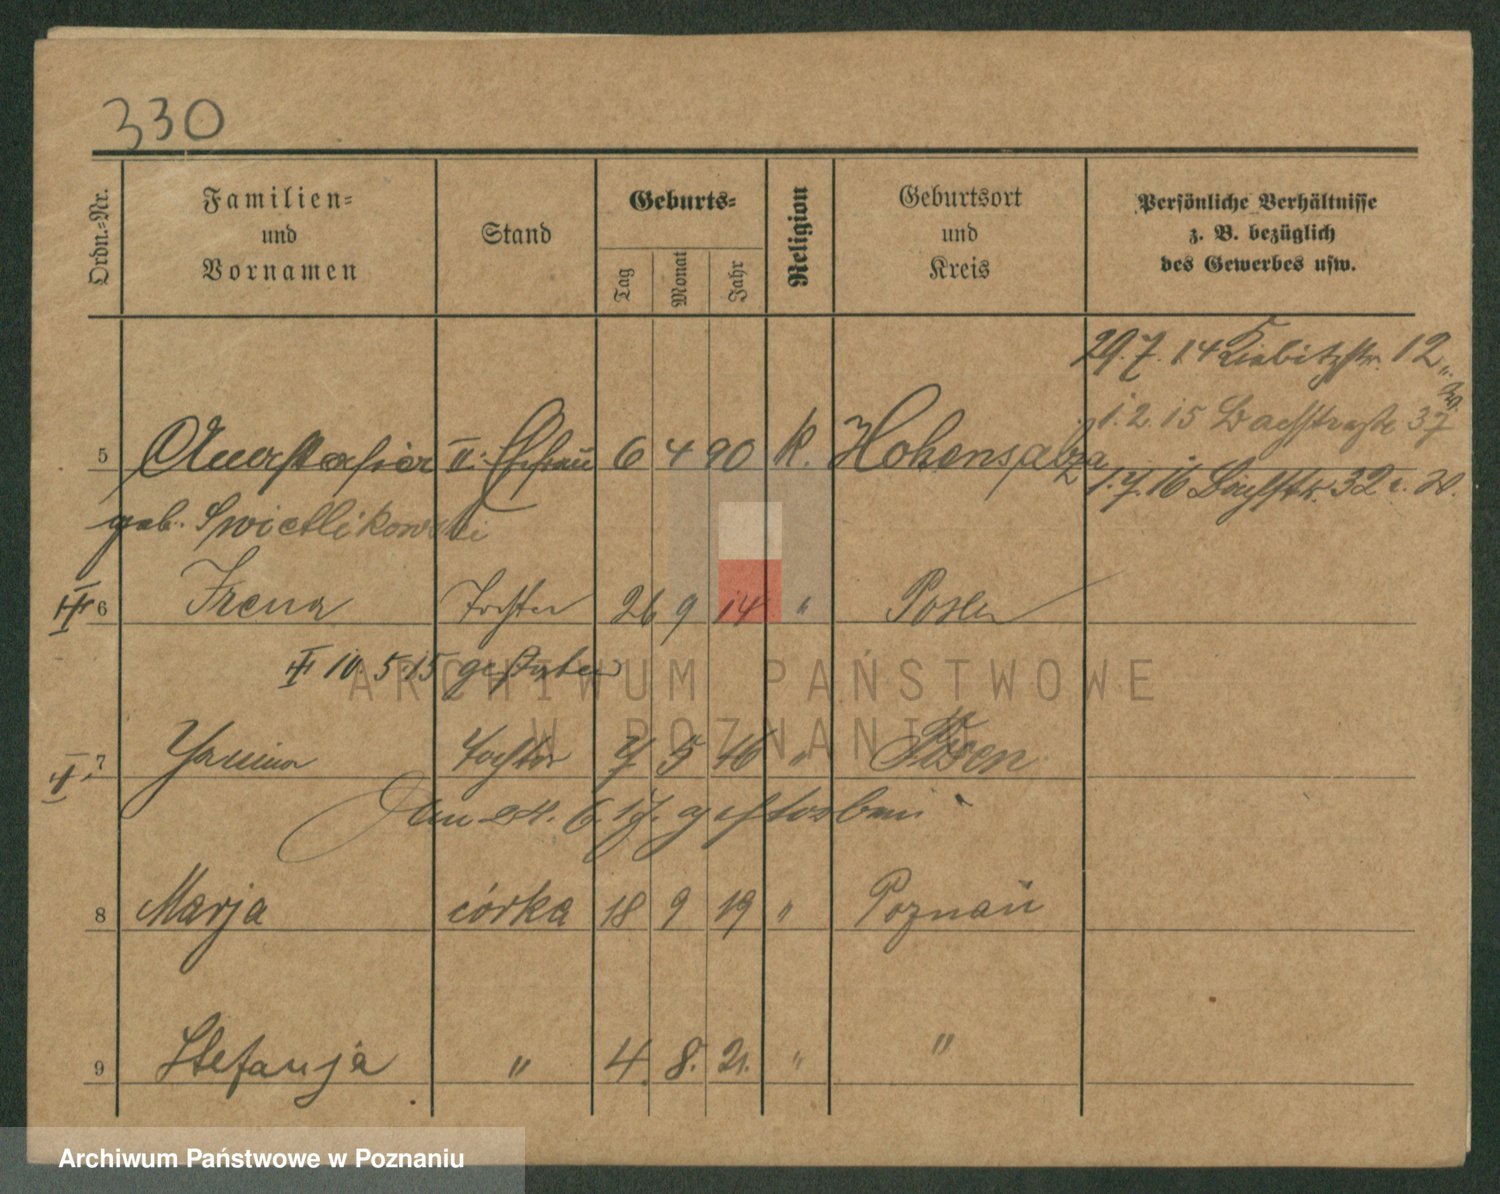 330
Ordn.-Nr. Familien- und Vornamen Stand Geburts- Tag Monat Jahr Religion Geburtsort und Kreis Persönliche Verhältnisse z. B. bezüglich des Gewerbes usw.
29.7.14 Kiebitzstr. 12
1.2.15 Bachstraße 37
5 Anastasia II. Ehefrau 6 4 90 k. Hohensalza
1.7.16 Bachstr. 32
geb. Swietlikowski
6 Irena Tochter 26 9 14 " Posen
10.5.15 gestorben
7 Yanina Tochter 7 5 16 " Posen
am 24.6.17. gestorben
8 Marja córka 18 9 19 " Poznań
9 Stefanja " 4. 8. 21. " "
ARCHIWUM PAŃSTWOWE
W POZNANIU
Archiwum Państwowe w Poznaniu